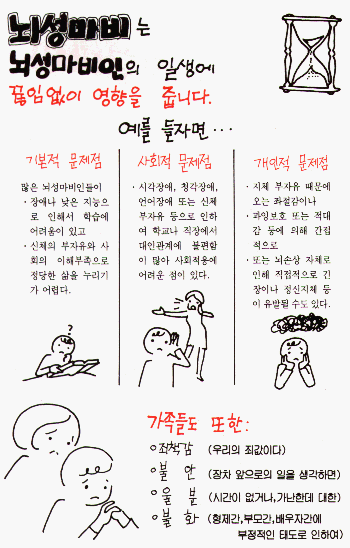 뇌성마비는
뇌성마비인의 일생에
끊임없이 영향을 줍니다.
예를 들자면…
기본적 문제점
많은 뇌성마비인들이
· 장애나 낮은 지능으
로 인해서 학습에
어려움이 있고
· 신체의 부자유와 사
회의 이해부족으로
정당한 삶을 누리기
가 어렵다.
사회적 문제점
· 시각장애, 청각장애,
언어장애 또는 신체
부자유 등으로 인하
여 학교나 직장에서
대인관계에 불편함
이 많아 사회적응에
어려운 점이 있다.
개인적 문제점
· 지체 부자유 때문에
오는 좌절감이나
· 과잉보호 또는 적대
감 등에 의해 간접
적으로
· 또는 뇌손상 자체로
인해 직접적으로 긴
장이나 정신지체 등
이 유발될 수도 있다.
?
가족들도 또한:
죄책감 (우리의 죄값이다)
불 안 (장차 앞으로의 일을 생각하면)
울 분 (시간이 없거나, 가난한데 대한)
불 화 (형제간, 부모간, 배우자간에
부정적인 태도로 인하여)